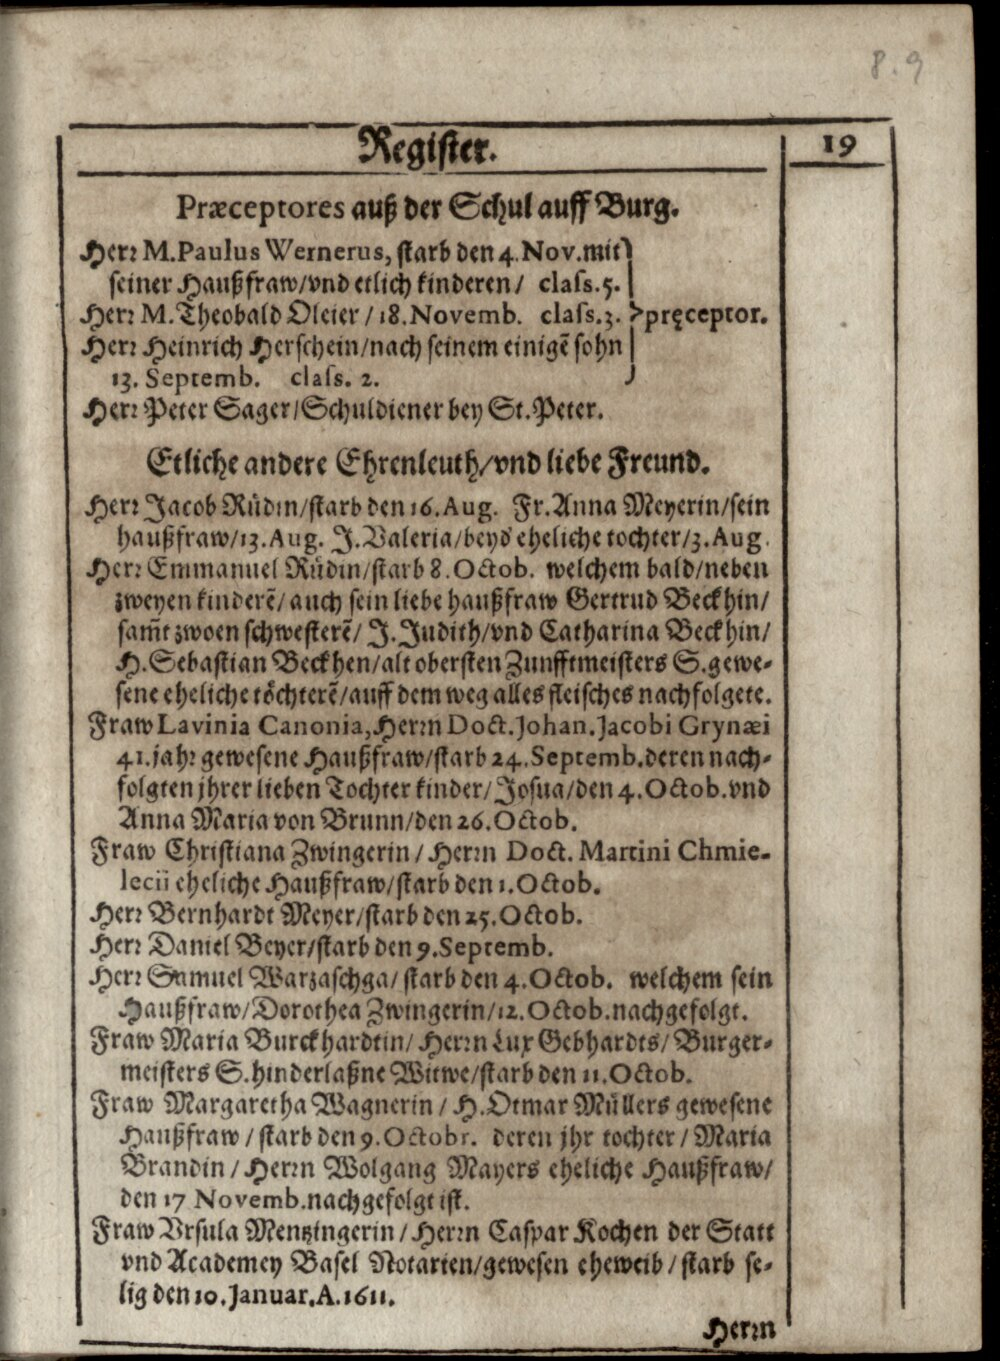 8.9
Register.
19
Præceptores auß der Schul auff Burg.
Herr M. Paulus Wernerus, starb den 4. Nov. mit
seiner Haußfraw/vnd etlich kinderen/ class. 5.
Herr M. Theobald Oleier/18. Novemb. class. 3. pręceptor.
Herr Heinrich Herschein/nach seinem einigẽ sohn
13. Septemb. class. 2.
Herr Peter Sager/Schuldiener bey St. Peter.
Etliche andere Ehrenleuth/vnd liebe Freund.
Herr Jacob Rüdin/starb den 16. Aug. Fr. Anna Meyerin/sein
haußfraw/13. Aug. J. Valeria/beyd eheliche tochter/3. Aug.
Herr Emmanuel Rüdin/starb 8. Octob. welchem bald/neben
zweyen kinderẽ/auch sein liebe haußfraw Gertrud Beckhin/
sam̃t zwoen schwesterẽ/ J. Judith/vnd Catharina Beckhin/
H. Sebastian Beckhen/alt obersten Zunfftmeisters S. gewe-
sene eheliche töchterẽ/auff dem weg alles fleisches nachfolgete.
Fraw Lavinia Canonia, Herrn Doct. Johan. Jacobi Grynæi
41. jahr gewesene Haußfraw/starb 24. Septemb. deren nach-
folgten jhrer lieben Tochter kinder/Josua/den 4. Octob. vnd
Anna Maria von Brunn/den 26. Octob.
Fraw Christiana Zwingerin/Herrn Doct. Martini Chmie-
lecii eheliche Haußfraw/starb den 1. Octob.
Herr Bernhardt Meyer/starb den 25. Octob.
Herr Daniel Beyer/starb den 9. Septemb.
Herr Samuel Warzaschga/starb den 4. Octob. welchem sein
Haußfraw/Dorothea Zwingerin/12. Octob. nachgefolgt.
Fraw Maria Burckhardtin/Herrn Lux Gebhardts/Burger-
meisters S. hinderlaßne Witwe/starb den 11. Octob.
Fraw Margaretha Wagnerin/H. Otmar Müllers gewesene
Haußfraw/starb den 9. Octobr. deren jhr tochter/Maria
Brandin/Herrn Wolgang Mayers eheliche Haußfraw/
den 17 Novemb. nachgefolgt ist.
Fraw Vrsula Mentzingerin/Herrn Caspar Kochen der Statt
vnd Academey Basel Notarien/gewesen eheweib/starb se-
lig den 10. Januar. A. 1611.
Herrn